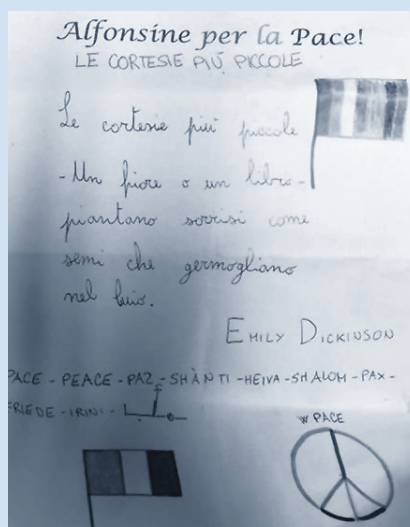 Alfonsine per la Pace!
LE CORTESIE PIÚ PICCOLE
Le cortesie piú piccole
-Un fiore o un libro-
piantano sorrisi come
semi che germogliano
nel buio.
EMILY DICKINSON
PACE - PEACE - PAZ - SHÀNTI - HEIVA - SHALOM - PAX -
FRIEDE - IRINI -
W PACE